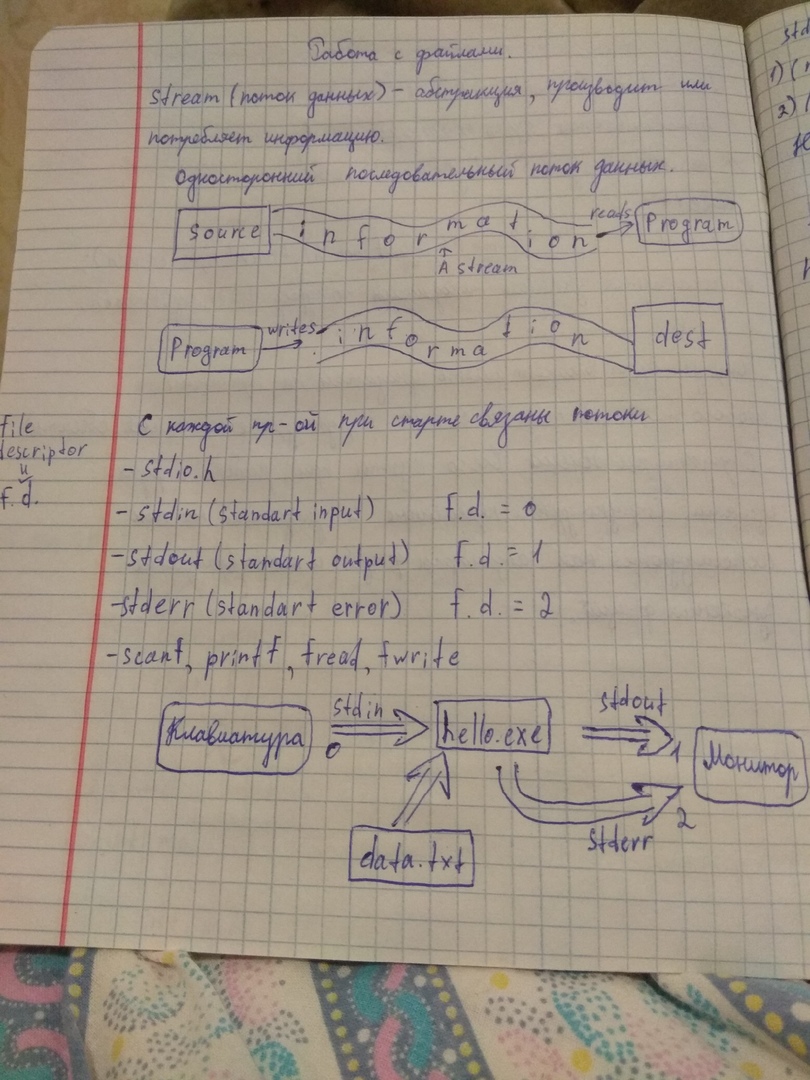 Работа с файлами.
Stream (поток данных) - абстракция, производит или
потребляет информацию.
Односторонний последовательный поток данных.
Source
information
reads
Program
A stream
Program
writes
information
dest
С каждой пр-ой при старте связаны потоки
file
descriptor
f.d.
- stdio.h
- stdin (standart input) f.d. = 0
- stdout (standart output) f.d. = 1
- stderr (standart error) f.d. = 2
- scanf, printf, fread, fwrite
Клавиатура
stdin
0
hello.exe
stdout
1
Монитор
2
stderr
data.txt
std
1) (
2) (